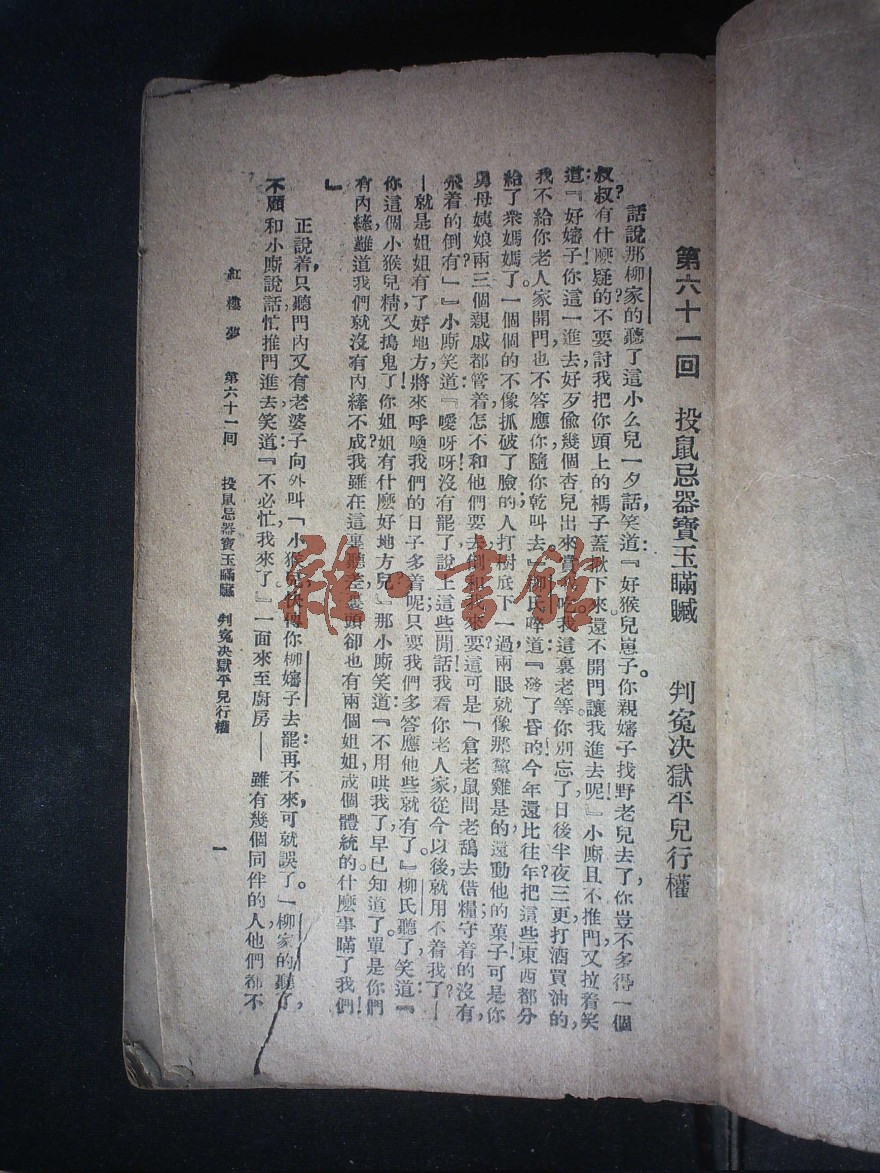 第六十一回　投鼠忌器寶玉瞞贓　判冤決獄平兒行權
話說那柳家的聽了這小么兒一夕話，笑道：『好猴兒崽子，你親嬸子找野老兒去了，你豈不多得一個
叔叔？有什麽疑的？不要討我把你頭上的榪子蓋揪下來！還不開門讓我進去呢！』小廝且不推門，又拉着笑
道：『好嬸子，你這一進去，好歹偷幾個杏兒出來賞我吃。我這裏老等。你別忘了，日後半夜三更打酒買油的，
我不給你老人家開門，也不答應你，隨你乾叫去。』柳氏啐道：『發了昏的！今年還比往年？把這些東西都分
給了衆媽媽了。一個個的不像抓破了臉的？人打樹底下一過，兩眼就像那黧雞是的，還動他的菓子！可是你
舅母姨娘兩三個親戚都管着，怎不和他們要去，倒和我來要？這可是「倉老鼠問老鴰去借糧，守着的沒有，
飛着的倒有」』小廝笑道：『噯呀呀！沒有罷了，說上這些閒話！我看你老人家從今以後就用不着我了？—
—就是姐姐有了好地方，將來呼喚我們的日子多着呢；只要我們多答應他些就有了。』柳氏聽了，笑道：『
你這個小猴兒精又搗鬼了！你姐姐有什麽好地方兒』那小廝笑道：『不用哄我了，早已知道了。單是你們
有內縴，難道我們就沒有內縴不成？我雖在這裏聽差，裏頭卻也有兩個姐姐成個體統的，什麽事瞞了我們！
』
正說着，只聽門內又有老婆子向外叫：「小猴兒，快傳你柳嬸子去罷，再不來，可就誤了。」柳家的聽了，
不顧和小廝說話，忙推門進去，笑道：『不必忙，我來了。』一面來至廚房——雖有幾個同伴的人，他們都不
紅樓夢　第六十一回　投鼠忌器寶玉瞞贓　判冤決獄平兒行權　一
雜·書館